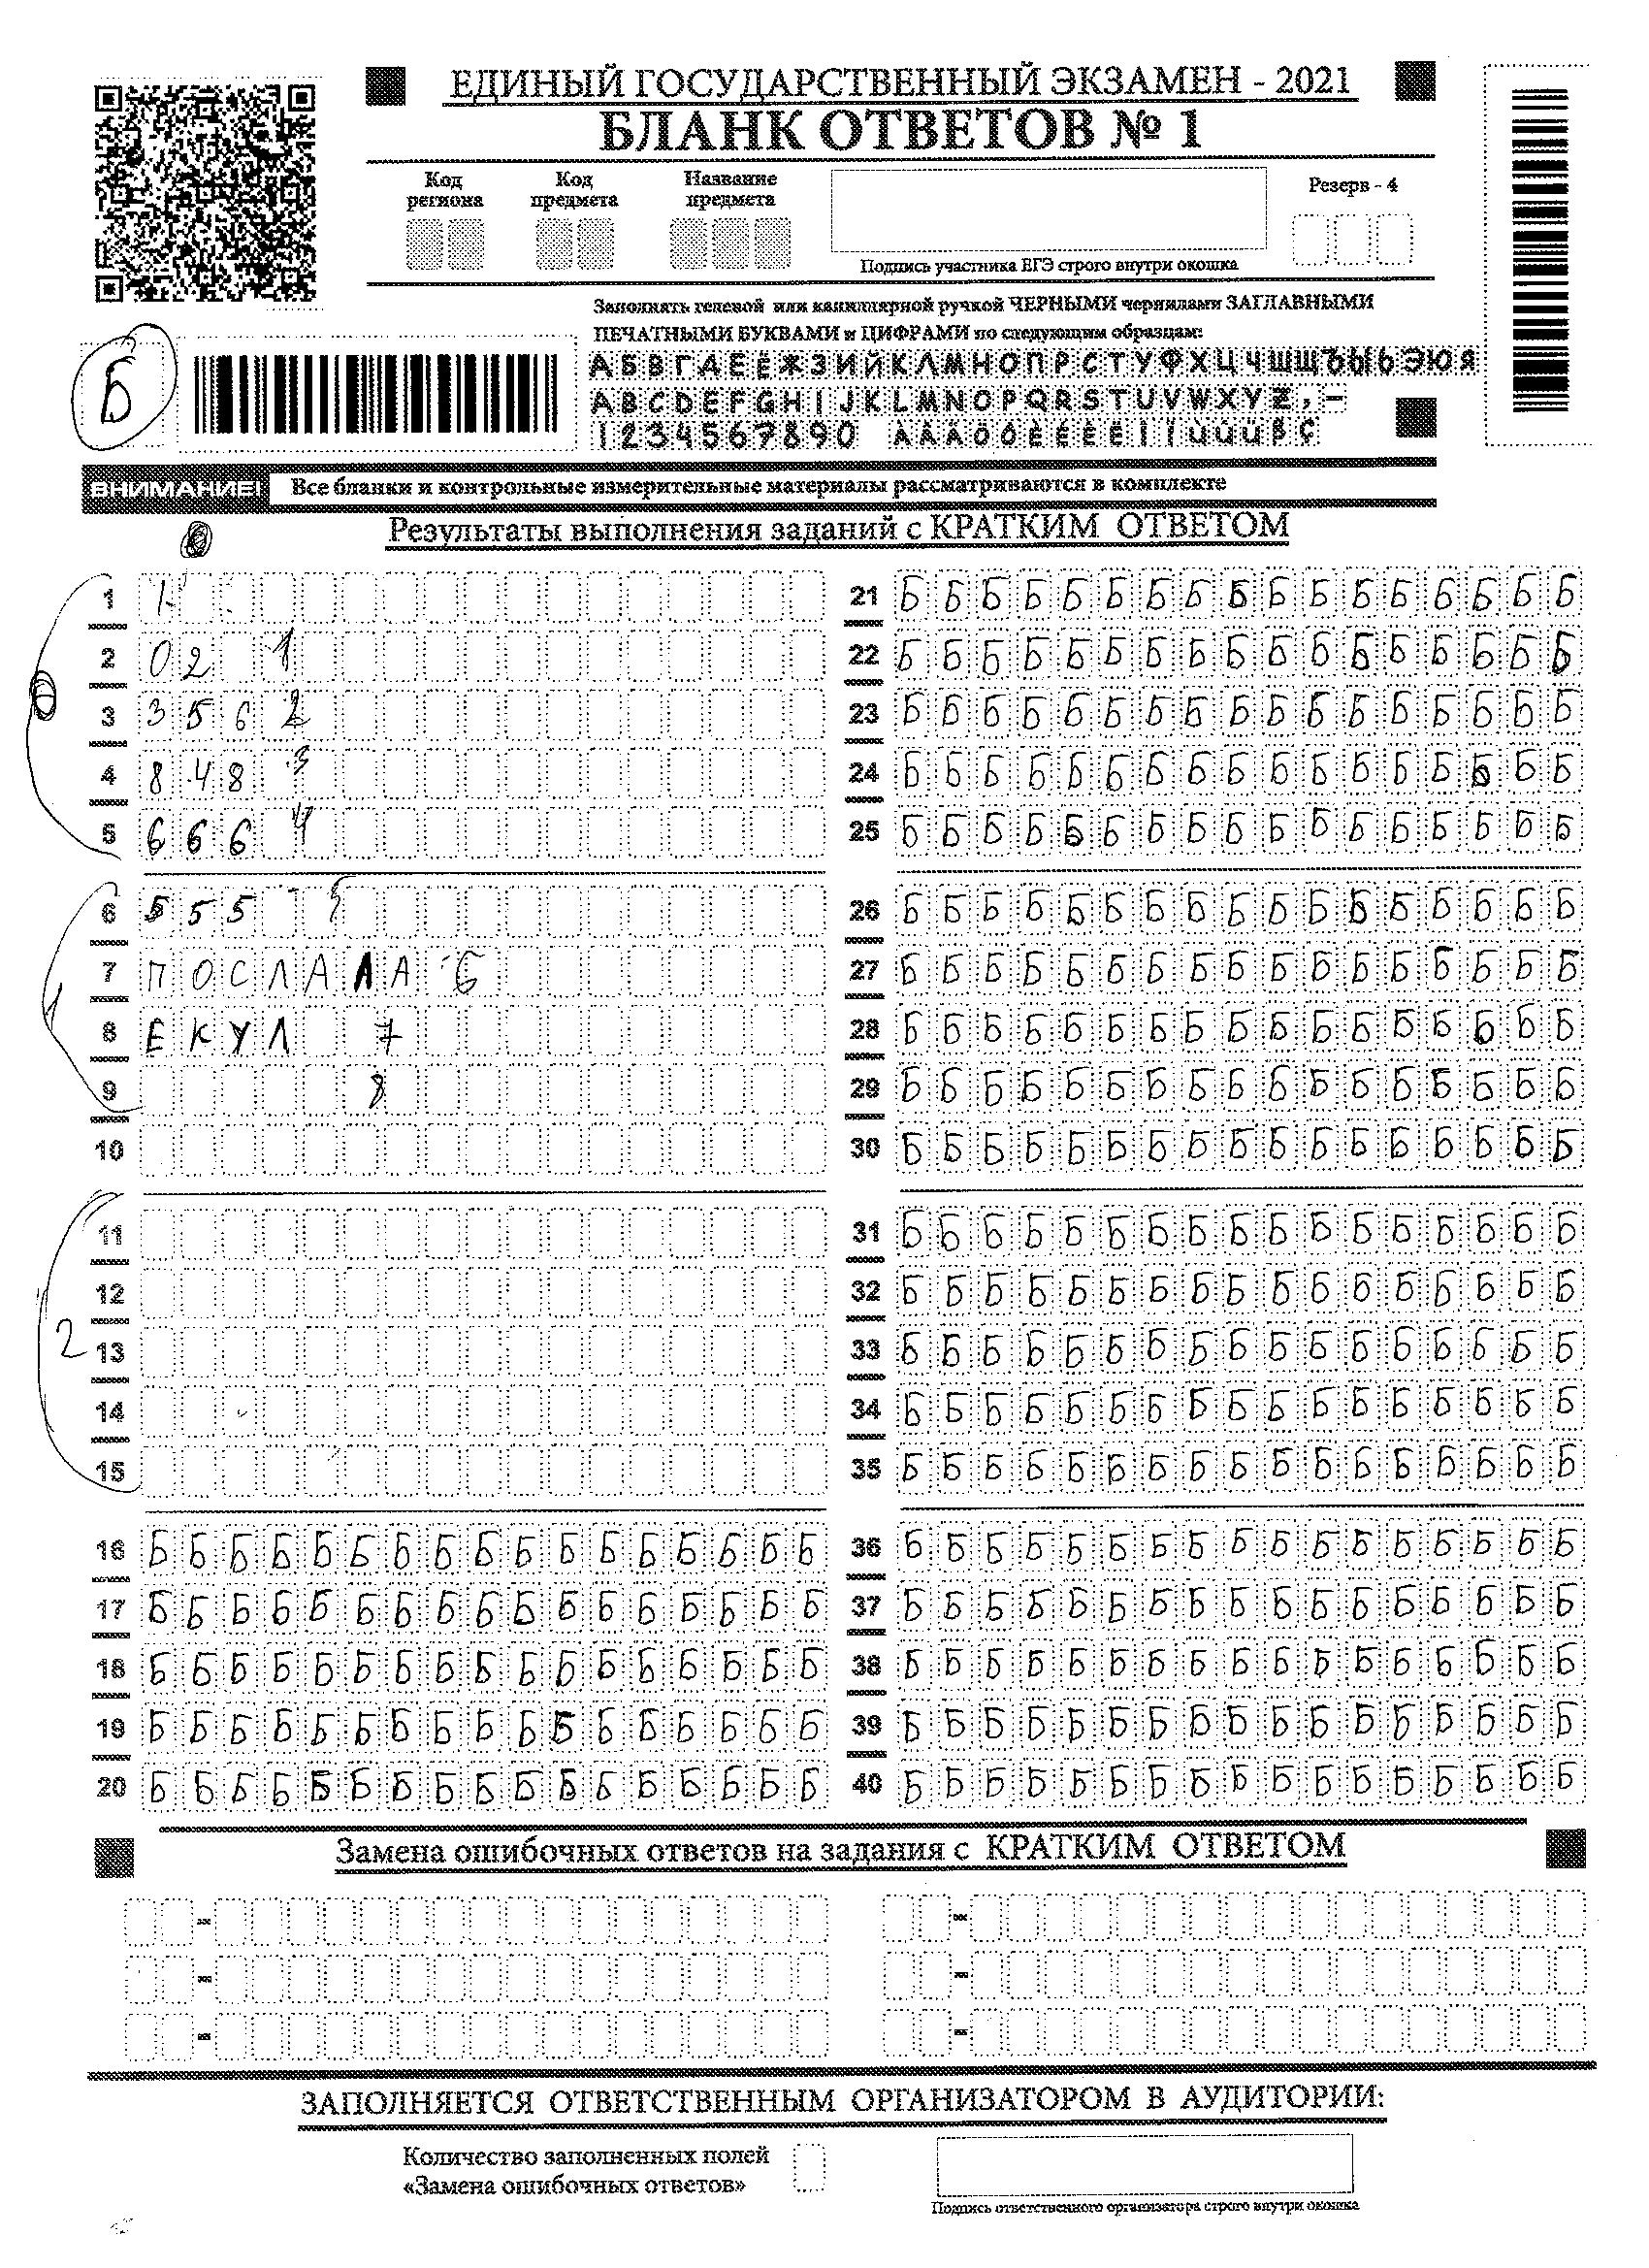 ЕДИНЫЙ ГОСУДАРСТВЕННЫЙ ЭКЗАМЕН - 2021
БЛАНК ОТВЕТОВ № 1
Код региона
Код предмета
Название предмета
Резерв - 4
Подпись участника ЕГЭ строго внутри окошка
Заполнять гелевой или капиллярной ручкой ЧЕРНЫМИ чернилами ЗАГЛАВНЫМИ
ПЕЧАТНЫМИ БУКВАМИ и ЦИФРАМИ по следующим образцам:
Б
АБВГДЕЁЖЗИЙКЛМНОПРСТУФХЦЧШЩЪЫЬЭЮЯ
ABCDEFGHIJKLMNOPQRSTUVWXYZ,-
1234567890
ВНИМАНИЕ! Все бланки и контрольные измерительные материалы рассматриваются в комплекте
Результаты выполнения заданий с КРАТКИМ ОТВЕТОМ
1 1
2 02 1
3 356 2
4 848 3
5 666 4
6 555 5
7 ПОСЛАЛА 6
8 ЕКУЛ 7
9 8
10
1
11
12
13
14
15
2
16 БББББББББББББББББ
17 БББББББББББББББББ
18 БББББББББББББББББ
19 БББББББББББББББББ
20 БББББББББББББББББ
21 БББББББББББББББББ
22 БББББББББББББББББ
23 БББББББББББББББББ
24 БББББББББББББББББ
25 БББББББББББББББББ
26 БББББББББББББББББ
27 БББББББББББББББББ
28 БББББББББББББББББ
29 БББББББББББББББББ
30 БББББББББББББББББ
31 БББББББББББББББББ
32 БББББББББББББББББ
33 БББББББББББББББББ
34 БББББББББББББББББ
35 БББББББББББББББББ
36 БББББББББББББББББ
37 БББББББББББББББББ
38 БББББББББББББББББ
39 БББББББББББББББББ
40 БББББББББББББББББ
Замена ошибочных ответов на задания с КРАТКИМ ОТВЕТОМ
ЗАПОЛНЯЕТСЯ ОТВЕТСТВЕННЫМ ОРГАНИЗАТОРОМ В АУДИТОРИИ:
Количество заполненных полей
«Замена ошибочных ответов»
Подпись ответственного организатора строго внутри окошка